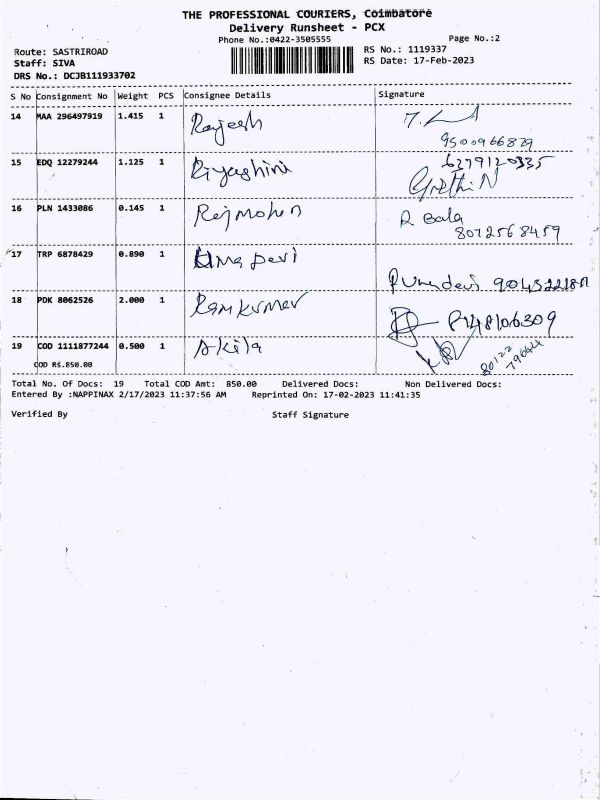 THE PROFESSIONAL COURIERS, Coimbatore
Delivery Runsheet - PCX
Phone No.:0422-3505555
Page No.:2
Route: SASTRIROAD
RS No.: 1119337
Staff: SIVA
RS Date: 17-Feb-2023
DRS No.: DCJB111933702
S No Consignment No Weight PCS Consignee Details Signature
14 MAA 296497919 1.415 1 Rajesh
9500966879
15 EDQ 12279244 1.125 1 Riyashini 6279120335
16 PLN 1433086 0.145 1 Rajmohen R Bala
8072568459
17 TRP 6878429 0.890 1 Uma Devi
18 PDK 8062526 2.000 1 Ramkumar
19 COD 1111877244 0.500 1 Akila
COD RS.850.00
80122
Total No. Of Docs: 19 Total COD Amt: 850.00 Delivered Docs: Non Delivered Docs:
Entered By :NAPPINAX 2/17/2023 11:37:56 AM Reprinted On: 17-02-2023 11:41:35
Verified By Staff Signature